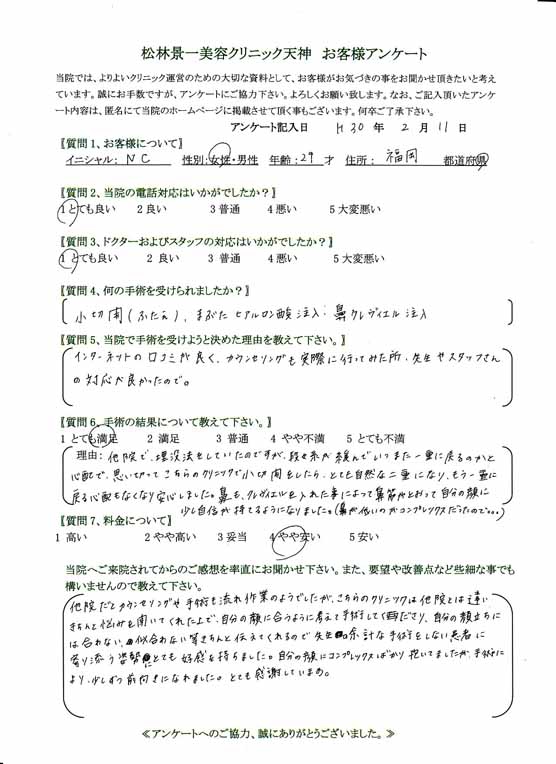 松林景一美容クリニック天神　お客様アンケート
当院では、よりよいクリニック運営のための大切な資料として、お客様がお気づきの事をお聞かせ頂きたいと考え
ています。誠にお手数ですが、アンケートにご協力下さい。よろしくお願い致します。なお、ご記入頂いたアンケ
ート内容は、匿名にて当院のホームページに掲載させて頂く事もございます。何卒ご了承下さい。
アンケート記入日　H30 年　2 月　11 日
〖質問1、お客様について〗
イニシャル： NC　性別：女性・男性　年齢：29 才　住所：　福岡　都道府県
〖質問2、当院の電話対応はいかがでしたか？〗
1 とても良い　2 良い　3 普通　4 悪い　5 大変悪い
〖質問3、ドクターおよびスタッフの対応はいかがでしたか？〗
1 とても良い　2 良い　3 普通　4 悪い　5 大変悪い
〖質問4、何の手術を受けられましたか？〗
小切開(ふたえ)、まぶたヒアルロン酸注入、鼻クレヴィエル注入
〖質問5、当院で手術を受けようと決めた理由を教えて下さい。〗
インターネットの口コミが良く、カウンセリングも実際に行ってみた所、先生やスタッフさん
の対応が良かったので。
〖質問6、手術の結果について教えて下さい。〗
1 とても満足　2 満足　3 普通　4 やや不満　5 とても不満
理由：他院で、埋没法をしていたのですが、段々糸が緩んでいつまた一重に戻るのかと
心配で、思い切ってこちらのクリニックで小切開をしたら、とても自然な二重になり、もう一重に
戻る心配もなくなり安心しました。鼻も、クレヴィエルを入れた事によって鼻筋がとおって自分の顔に
少し自信が持てるようになりました。(鼻が低いのがコンプレックスだったので…)
〖質問7、料金について〗
1 高い　2 やや高い　3 妥当　4 やや安い　5 安い
当院へご来院されてからのご感想を率直にお聞かせ下さい。また、要望や改善点など些細な事でも
構いませんので教えて下さい。
他院だとカウンセリングや手術も流れ作業のようでしたが、こちらのクリニックは他院とは違い
きちんと悩みを聞いてくれた上で、自分の顔に合うように考えて手術して下さり、自分の顔立ちに
は合わない、似合わない等きちんと伝えてくれるので先生の余計な手術をしない患者に
寄り添う姿勢にとても好感を持ちました。自分の顔にコンプレックスばかり抱いてましたが、手術に
より、少しずつ前向きになれました。とても感謝しています。
≪アンケートへのご協力、誠にありがとうございました。≫